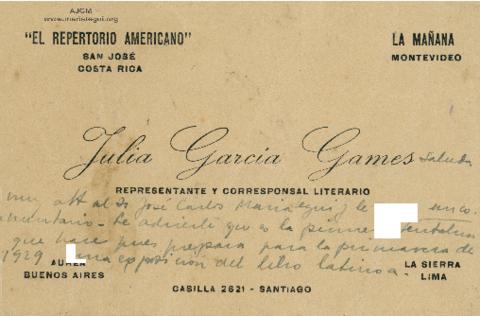 AJCM -
www.mariategui.org
"EL REPERTORIO AMERICANO"
SAN JOSÉ
COSTA RICA
LA MAÑANA
MONTEVIDEO
Julia Garcia Games saluda
REPRESENTANTE Y CORRESPONSAL LITERARIO
muy att al Sr José Carlos Mariategui y le
Le advierte que es la primera
que hace pues prepara para la primavera de
1929 una exposición del libro latinoa.
BUENOS AIRES
LA SIERRA
LIMA
CASILLA 2621 - SANTIAGO